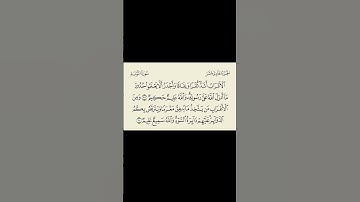 الجزء الحادي عشر سورة التوبة
ٱلْأَعْرَابُ أَشَدُّ كُفْرًا وَنِفَاقًا وَأَجْدَرُ أَلَّا يَعْلَمُوا۟ حُدُودَ
مَآ أَنزَلَ ٱللَّهُ عَلَىٰ رَسُولِهِۦ وَٱللَّهُ عَلِيمٌ حَكِيمٌ ٩٧ وَمِنَ
ٱلْأَعْرَابِ مَن يَتَّخِذُ مَا يُنفِقُ مَغْرَمًا وَيَتَرَبَّصُ بِكُمُ
ٱلدَّوَآئِرَ عَلَيْهِمْ دَآئِرَةُ ٱلسَّوْءِ وَٱللَّهُ سَمِيعٌ عَلِيمٌ ٩٨